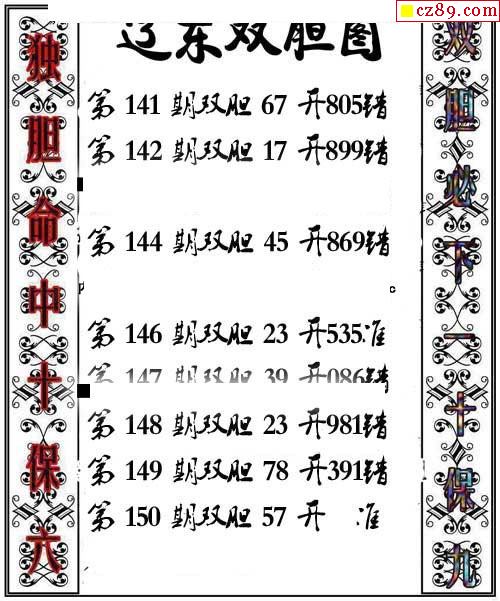 cz89.com
辽东双胆图
独胆命中十保六
双胆必下一十保九
第 141 期双胆 67 开805错
第 142 期双胆 17 开899错
第 144 期双胆 45 开869错
第 146 期双胆 23 开535准
第 147 期双胆 39 开086错
第 148 期双胆 23 开981错
第 149 期双胆 78 开391错
第 150 期双胆 57 开 准